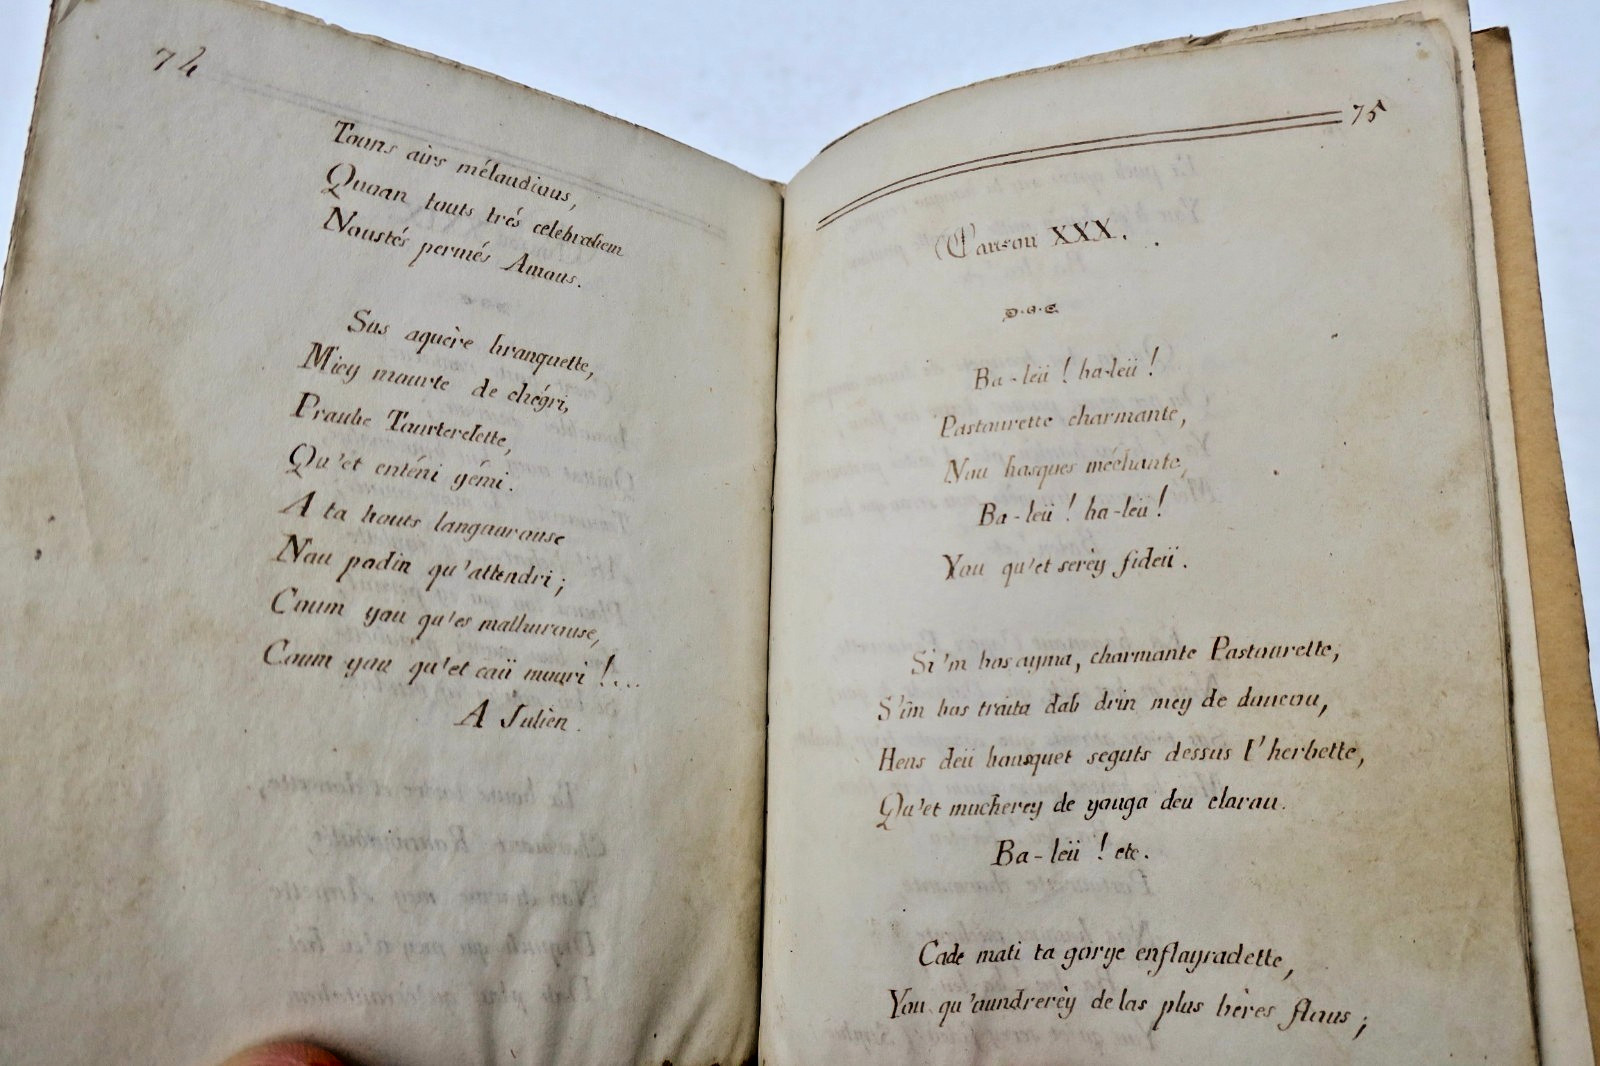 74
Touns airs mélaudious,
Quoan touts trés celebrabem
Noustés permés Amous.
Sus aquère branquette,
Miey mourte de chégri,
Praube Tourterelette,
Qu'et enténi gémi.
A ta bouts langourouse
Nou podin qu'attendri;
Coum you qu'es malhurouse,
Coum you qu'et caü mouri !...
A Julien.
75
Canson XXX.
Ba-leü ! ba-leü !
Pastourette charmante,
Nou basques méchante,
Ba-leü ! ba-leü !
You qu'et serèy fideü.
Si'm bos ayma, charmante Pastourette,
S'im bos traita dab drin mey de douçou,
Hens deü bousquet seguts dessus l'herbette,
Qu'et mucherey de youga deu clarou.
Ba-leü ! etc.
Cade mati ta gorge enflayradette,
You qu'aundrerèy de las plus bères flous;